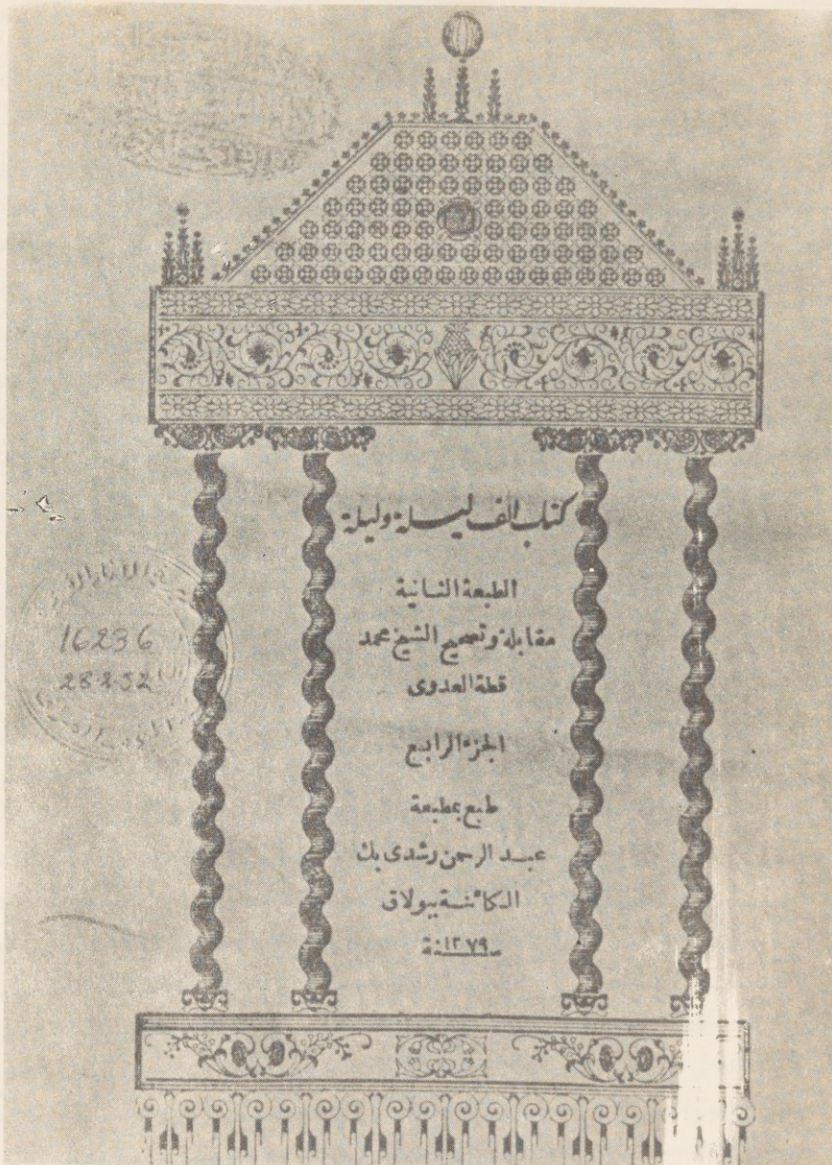 كتاب الف ليلة وليلة
الطبعة الثانية
مقابلة وتصحيح الشيخ محمد
قطة العدوى
الجزء الرابع
طبع بمطبعة
عبد الرحمن رشدى بك
الكائنة ببولاق
سنة ١٢٧٩
16236
28 2 52